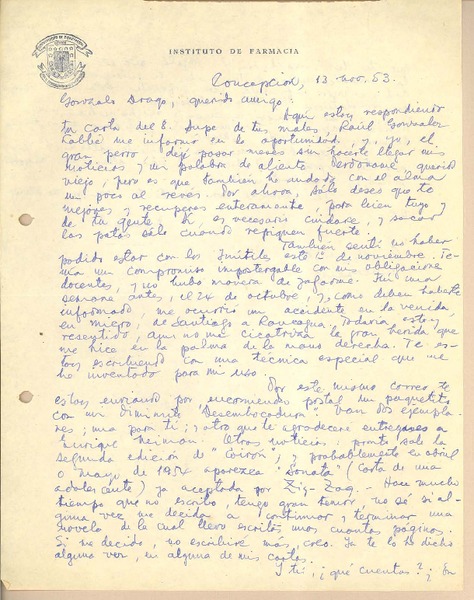 INSTITUTO DE FARMACIA
Concepción, 13 nov. 53.
Gonzalo Drago, querido amigo:
Aquí estoy respondiendo
tu carta del 8. Supe de tus males. Raúl González
Labbé me informó en la oportunidad, y, yo, el
gran perro dejé pasar meses sin hacerte llegar mis
noticias y mi palabra de aliento. Perdóname, querido
viejo, pero es que también he andado con el alma
un poco al revés. Por ahora, sólo deseo que te
mejores y recuperes enteramente, para bien tuyo y
de tu gente. Es necesario cuidarse, y sacar
las patas sólo cuando repiquen fuerte.
También sentí no haber
podido estar con los Inútiles este 1º de noviembre. Te-
nía un compromiso impostergable con mis obligaciones
docentes, y no hubo manera de zafarme. Fui una
semana antes, el 24 de octubre, y, como deben haberte
informado, me ocurrió un accidente en la venida,
en micro, de Santiago a Rancagua. Todavía estoy
resentido, aún no me cicatriza la gran herida que
me hice en la palma de la mano derecha. Te es-
toy escribiendo con una técnica especial que me
he inventado para mi uso.
Por este mismo correo, te
estoy enviando por encomienda postal un paquetito
con mi diminuto "Desembocadura". Van dos ejempla-
res; uno para ti; y otro que te agradeceré entregues a
Enrique Neiman. Otras noticias: pronto sale la
segunda edición de "Coirón", y probablemente en abril
o mayo de 1954 aparezca "Sonata" (Carta de una
adolescente) ya aceptada por Zig-Zag. - Hace mucho
tiempo que no escribo, tengo gran temor, no sé si al-
guna vez me decida a continuar y terminar una
novela de la cual llevo escritas unas cuantas páginas.
Si me decido, no escribiré más, creo. Ya te lo he dicho
alguna vez, en alguna de mis cartas.
Y tú, ¿qué cuentas? ¿En